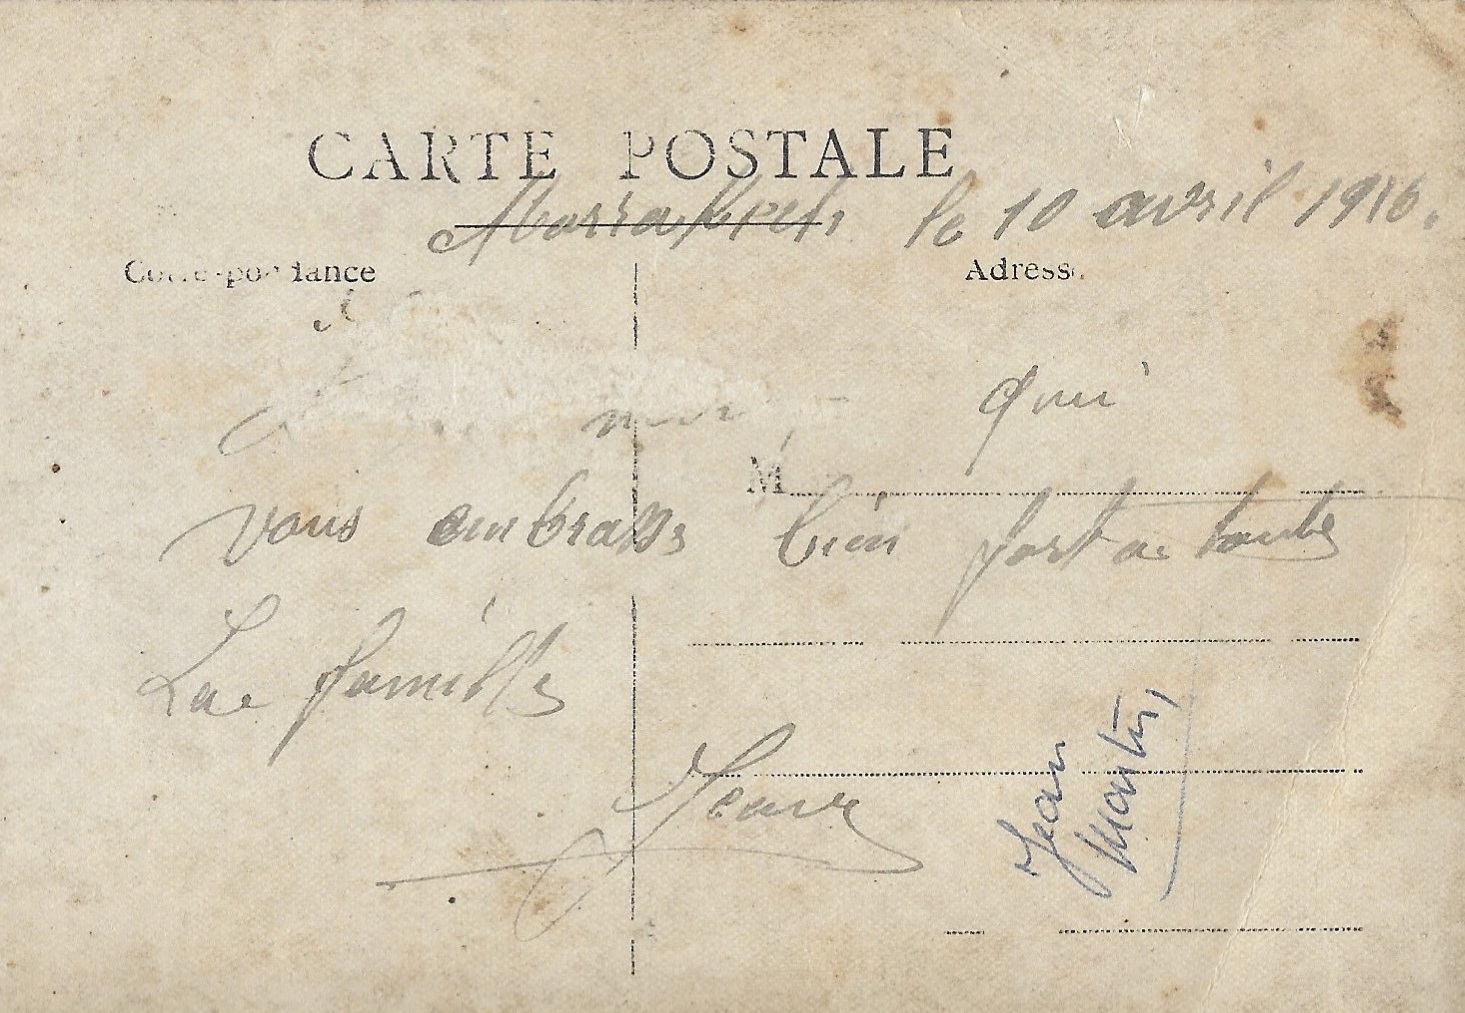 CARTE POSTALE
Marrakech le 10 avril 1916.
Correspondance
Adresse
qui
M
vous embrasse bien fort a toute
La famille
Jean
Jean
Martin